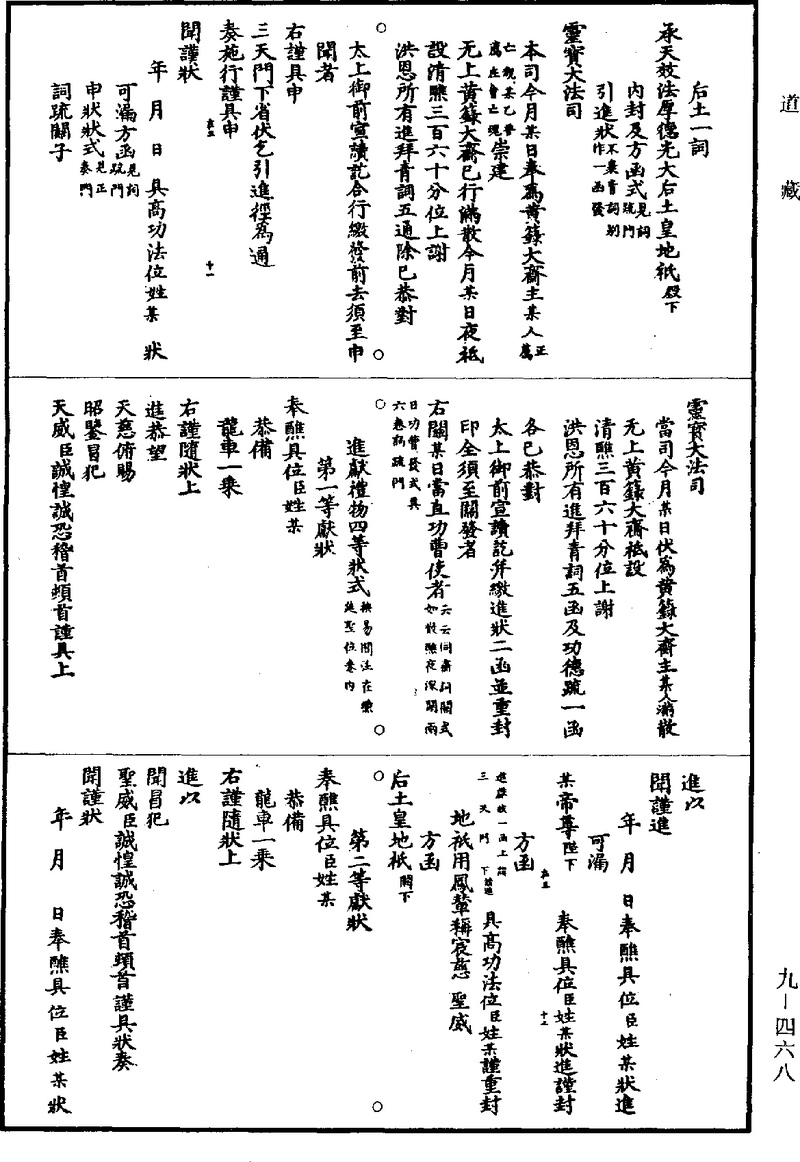 道藏
后土一詞
承天效法厚德光大后土皇地祇殿下
內封及方函式見詞疏門
引進狀不奏青詞別作一函發
靈寶大法司
本司今月某日奉為黃籙大齋主某人正薦
亡靈某乙崇建
无上黃籙大齋已行滿散今月某日夜祗
設清醮三百六十分位上謝
洪恩所有進拜青詞五通除已恭對
太上御前宣讀訖合行繳發前去須至申
聞者
右謹具申
三天門下省伏乞引進徑為通
奏施行謹具申
聞謹狀
年月日具高功法位姓某狀
可漏方函見詞疏門
申狀狀式見正奏門
詞疏關子
靈寶大法司
當司今月某日伏為黃籙大齋主某人滿散
无上黃籙大齋祗設
清醮三百六十分位上謝
洪恩所有進拜青詞五函及功德疏一函
各已恭對
太上御前宣讀訖并繳進狀二函並重封
印全須至關發者
右關某日當直功曹使者云云同齋詞關式如散醮夜深關兩
日功曹發式具六卷詞疏門
進獻禮物四等狀式
第一等獻狀
奉醮具位臣姓某
恭備
龍車一乘
右謹隨狀上
進恭望
天慈俯賜
昭鑒冒犯
天威臣誠惶誠恐稽首頓首謹具上
進以
聞謹進
年月日奉醮具位臣姓某狀進
可漏
某帝尊陛下奉醮具位臣姓某狀進謹封
方函
進獻狀一函上詣三天門下請進具高功法位臣姓某謹重封
地祇用鳳輦稱宸慈聖威
方函
后土皇地祇闕下
第二等獻狀
奉醮具位臣姓某
恭備
龍車一乘
右謹隨狀上
進以
聞冒犯
聖威臣誠惶誠恐稽首頓首謹具狀奏
聞謹狀
年月日奉醮具位臣姓某狀
九—四六八